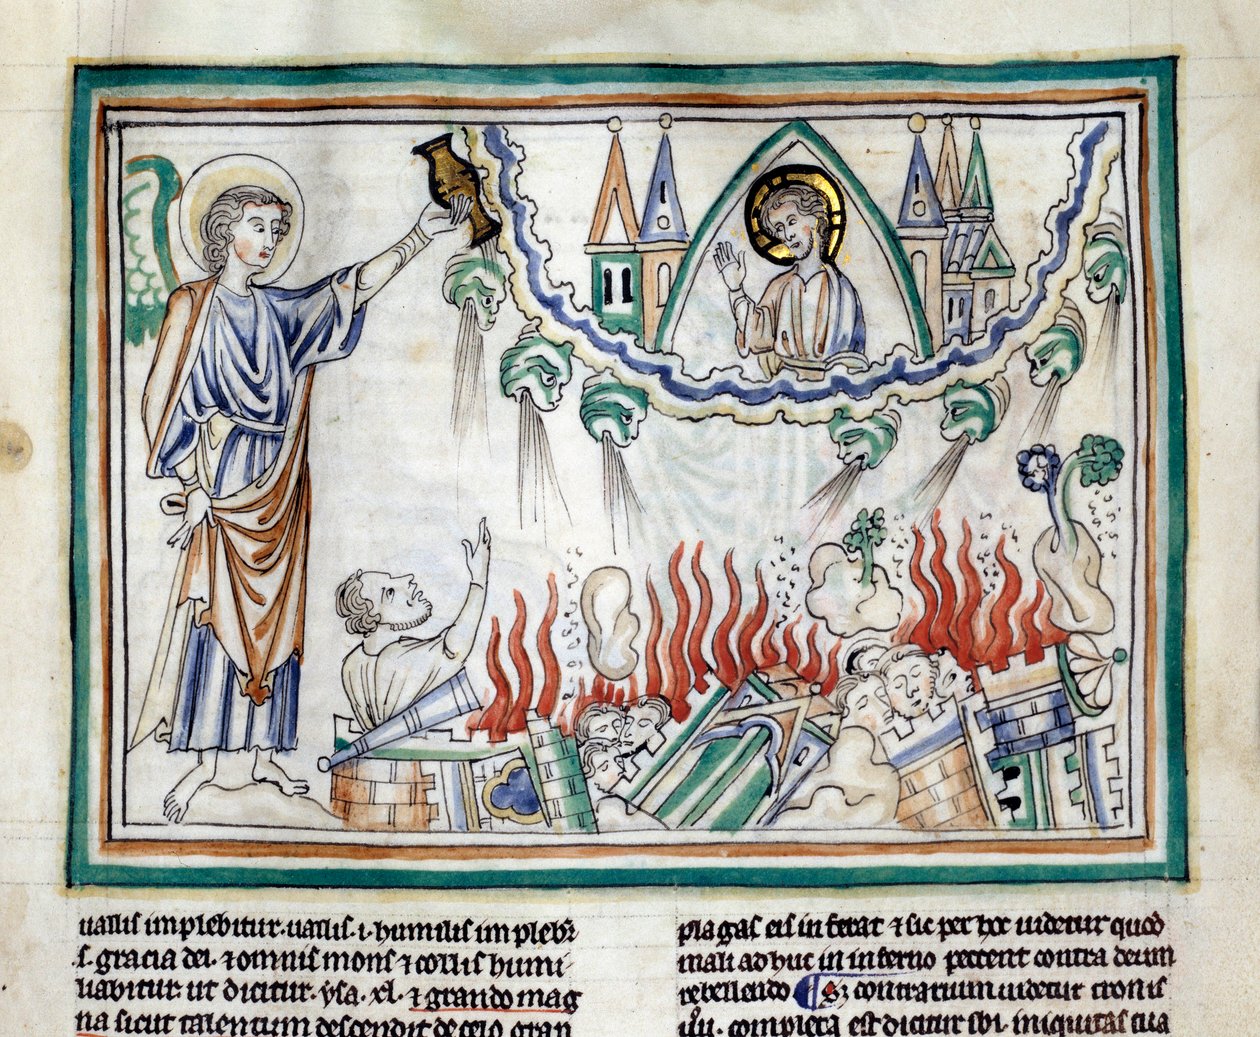 uallis implebitur. uallis .i. humilis implebr̃
.s. gracia dei. ⁊ omnis mons ⁊ collis humi
liabitur. ut dicitur. ysa. xl. ⁊ grando mag
na sicut talentum descendit de celo gran
plagas eis inferat ⁊ sic per hoc uidetur quod
mali adhuc in inferno peccent contra deum
rebellando ¶ Sꝫ contrarium uidetur
completa est dicitur ibi. iniquitas tua